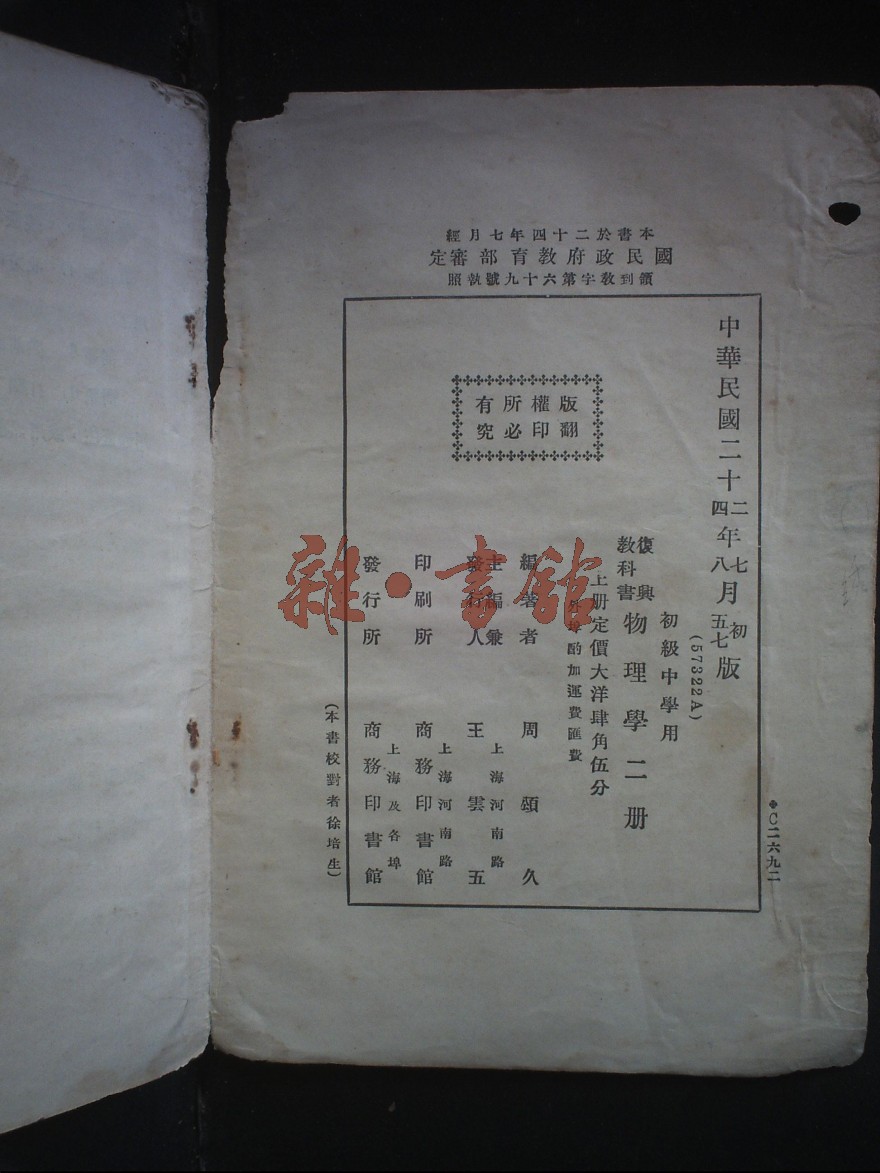 本書於二十四年七月經
國民政府教育部審定
領到教字第六十九號執照
版權所有
翻印必究
中華民國二十二年七月初版
四 八 五七
(57322A)
初級中學用
復興
教科書
物理學二册
上册定價大洋肆角伍分
外埠酌加運費匯費
編著者 周頌久
主編兼
發行人
上海河南路
王雲五
印刷所
上海河南路
商務印書館
發行所
上海及各埠
商務印書館
(本書校對者徐培生)
C二六九二
雜·書館